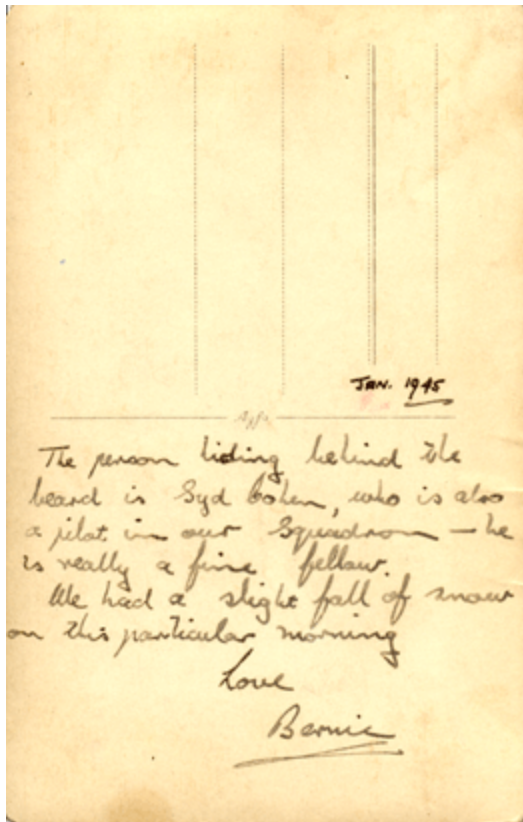 JAN. 1945
The person hiding behind the
beard is Syd Cohen, who is also
a pilot in our Squadron — he
is really a fine fellow.
We had a slight fall of snow
on this particular morning
Love
Bernie